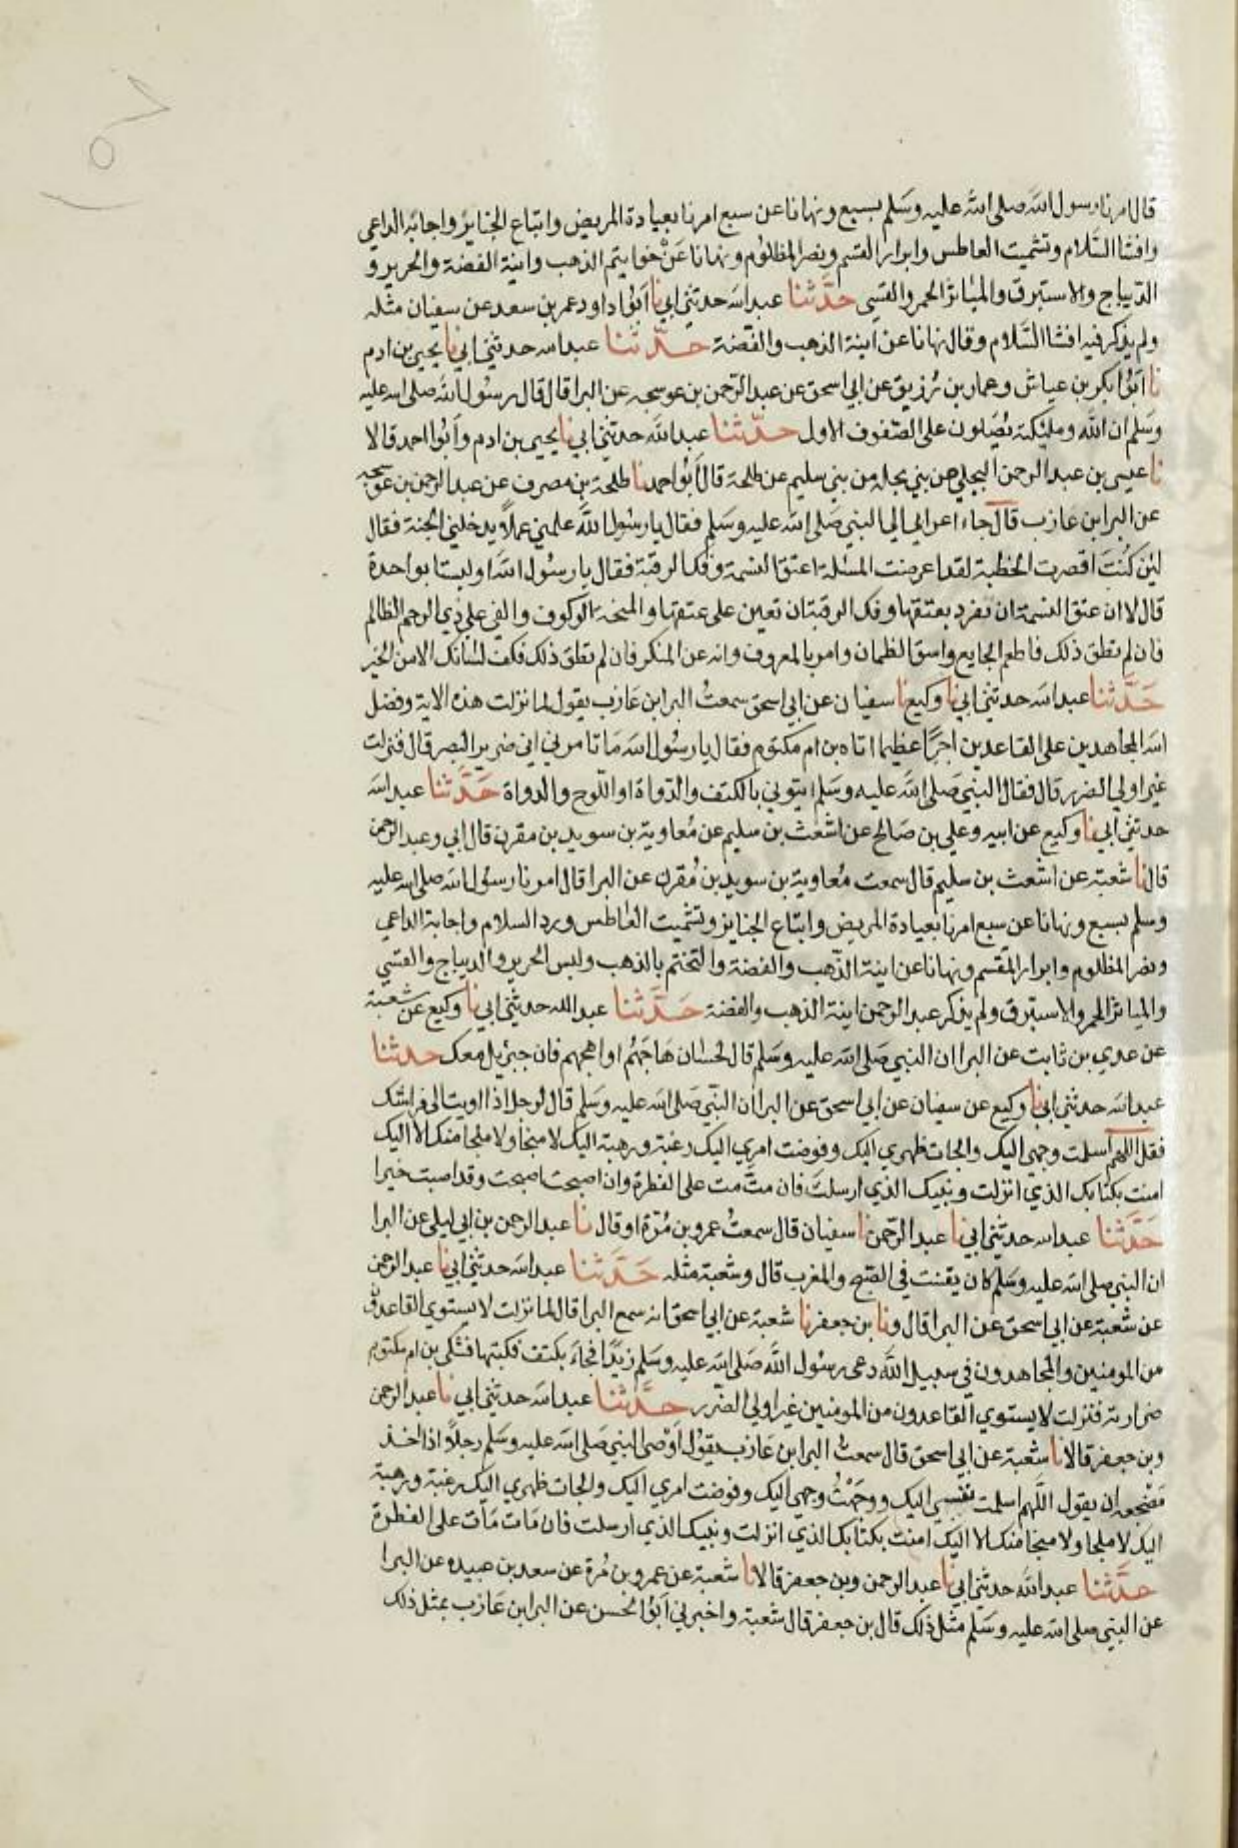 قال امرنا رسول الله صلى الله عليه وسلم بسبع ونهانا عن سبع امرنا بعيادة المريض واتباع الجنايز واجابة الداعي
وافشا السلام وتشميت العاطس وابرار القسم ونصر المظلوم ونهانا عن خواتيم الذهب وانية الفضة والحرير و
الديباج والاستبرق والمياثر الحمر والقسي حدثنا عبد الله حدثني ابي نا ابوا داود عمر بن سعد عن سفيان مثله
ولم يذكر فيه افشا السلام وقال نهانا عن انية الذهب والفضة حدثنا عبد الله حدثني ابي نا يحيى بن ادم
نا ابوا بكر بن عياش وعمار بن رزيق عن ابي اسحق عن عبد الرحمن بن عوسجه عن البرا قال قال رسول الله صلى الله عليه
وسلم ان الله ومليكته يصلون على الصفوف الاول حدثنا عبد الله حدثني ابي نا يحيى بن ادم وابوا احمد قالا
نا عيسى بن عبد الرحمن البجلي من بني بجله من بني سليم عن طلحة قال ابوا احمد نا طلحة بن مصرف عن عبد الرحمن بن عوسجه
عن البرا بن عازب قال جاء اعرابي الى النبي صلى الله عليه وسلم فقال يا رسول الله علمني عملا يدخلني الجنة فقال
لئن كنت اقصرت الخطبة لقد اعرضت المسئلة اعتق النسمة وفك الرقبة فقال يا رسول الله اوليستا بواحدة
قال لا ان عتق النسمة ان تفرد بعتقها وفك الرقبة ان تعين على عتقها والمنحة الوكوف والفي على ذي الرحم الظالم
فان لم تطق ذلك فاطعم الجايع واسق الظمان وامر بالمعروف وانه عن المنكر فان لم تطق ذلك فكف لسانك الا من الخير
حدثنا عبد الله حدثني ابي نا وكيع نا سفيان عن ابي اسحق سمعت البرا بن عازب يقول لما نزلت هذه الاية وفضل
الله المجاهدين على القاعدين اجرا عظيما اتاه بن ام مكتوم فقال يا رسول الله ما تامرني اني ضرير البصر قال فنزلت
غير اولي الضرر قال فقال النبي صلى الله عليه وسلم ايتوني بالكتف والدواة او اللوح والدواة حدثنا عبد الله
حدثني ابي نا وكيع عن ابيه وعلي بن صالح عن اشعث بن سليم عن معاوية بن سويد بن مقرن قال ابي وعبد الرحمن
قال نا شعبة عن اشعث بن سليم قال سمعت معاوية بن سويد بن مقرن عن البرا قال امرنا رسول الله صلى الله عليه
وسلم بسبع ونهانا عن سبع امرنا بعيادة المريض واتباع الجنايز وتشميت العاطس ورد السلام واجابة الداعي
ونصر المظلوم وابرار المقسم ونهانا عن انية الذهب والفضة والتختم بالذهب ولبس الحرير والديباج والقسي
والمياثر الحمر والاستبرق ولم يذكر عبد الرحمن انية الذهب والفضة حدثنا عبد الله حدثني ابي نا وكيع عن شعبة
عن عدي بن ثابت عن البرا ان النبي صلى الله عليه وسلم قال لحسان هاجهم او اهجهم فان جبريل معك حدثنا
عبد الله حدثني ابي نا وكيع عن سفيان عن ابي اسحق عن البرا ان النبي صلى الله عليه وسلم قال لرجل اذا اويت الى فراشك
فقل اللهم اسلمت وجهي اليك والجات ظهري اليك وفوضت امري اليك رغبة ورهبة اليك لا منجا ولا ملجا منك الا اليك
امنت بكتابك الذي انزلت ونبيك الذي ارسلت فان مت مت على الفطرة وان اصبحت اصبحت وقد اصبت خيرا
حدثنا عبد الله حدثني ابي نا عبد الرحمن نا سفيان قال سمعت عمرو بن مرة او قال نا عبد الرحمن بن ابي ليلى عن البرا
ان النبي صلى الله عليه وسلم كان يقنت في الصبح والمغرب قال وشعبة مثله حدثنا عبد الله حدثني ابي نا عبد الرحمن
عن شعبة عن ابي اسحق عن البرا قال ونا بن جعفر نا شعبة عن ابي اسحق انه سمع البرا قال لما نزلت لا يستوي القاعدون
من المومنين والمجاهدون في سبيل الله دعى رسول الله صلى الله عليه وسلم زيدا فجاء بكتف فكتبها فشكى بن ام مكتوم
ضرارته فنزلت لا يستوي القاعدون من المومنين غير اولي الضرر حدثنا عبد الله حدثني ابي نا عبد الرحمن
وبن جعفر قالا نا شعبة عن ابي اسحق قال سمعت البرا بن عازب يقول اوصى النبي صلى الله عليه وسلم رجلا اذا اخذ
مضجعه ان يقول اللهم اسلمت نفسي اليك ووجهت وجهي اليك وفوضت امري اليك والجات ظهري اليك رغبة ورهبة
اليك لا ملجا ولا منجا منك الا اليك امنت بكتابك الذي انزلت ونبيك الذي ارسلت فان مات مات على الفطرة
حدثنا عبد الله حدثني ابي نا عبد الرحمن وبن جعفر قالا نا شعبة عن عمرو بن مرة عن سعد بن عبيده عن البرا
عن النبي صلى الله عليه وسلم مثل ذلك قال بن جعفر قال شعبة واخبرني ابوا الحسن عن البرا بن عازب بمثل ذلك